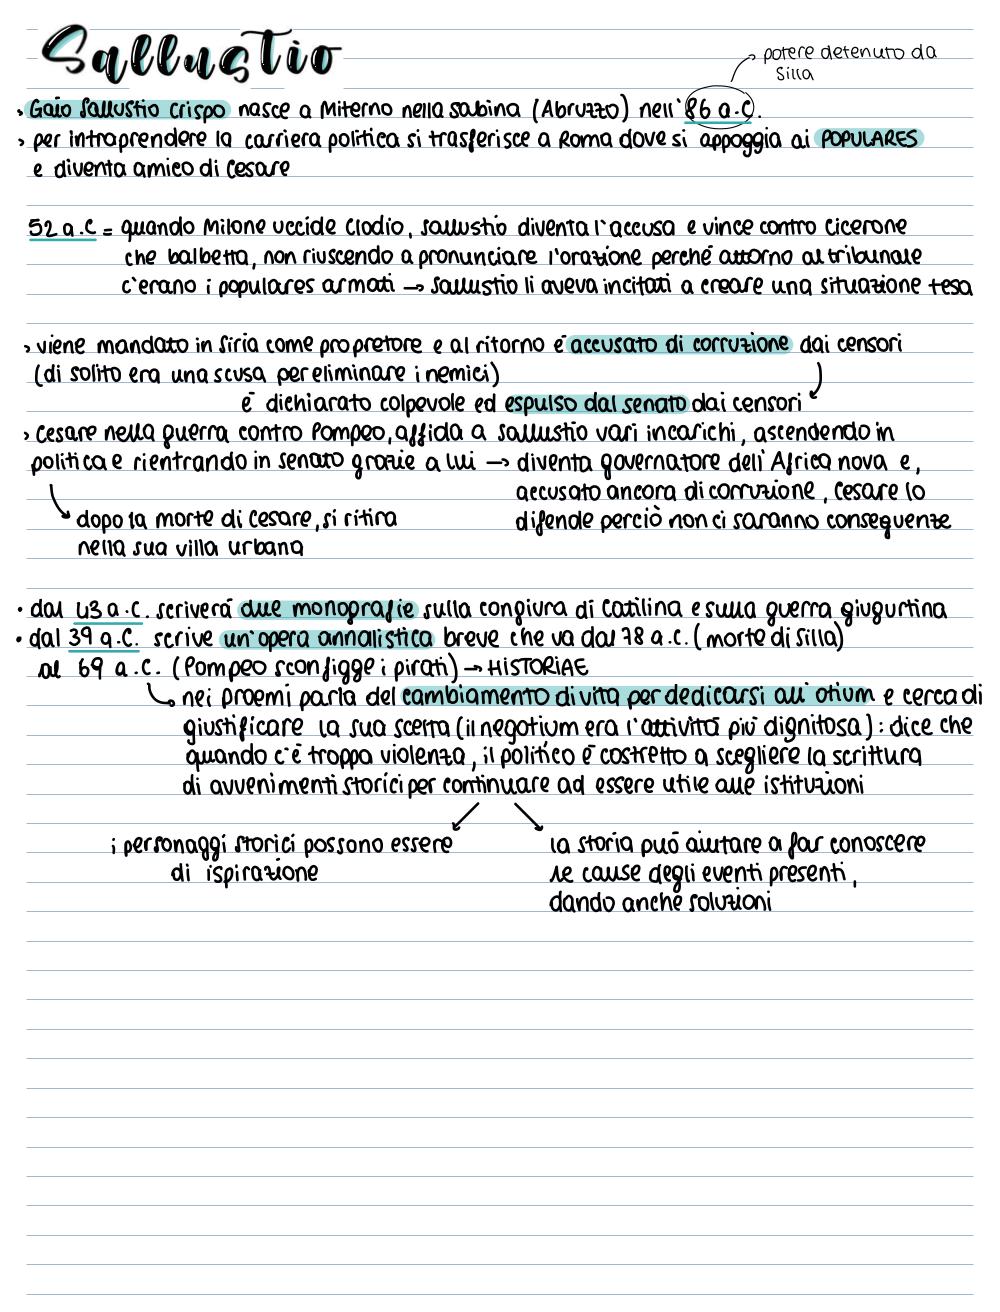 Sallustio
potere detenuto da
Silla
> Gaio Sallustio Crispo nasce a Miterno nella Sabina (Abruzzo) nell'86 a.C.
> per intraprendere la carriera politica si trasferisce a Roma dove si appoggia ai POPULARES
e diventa amico di Cesare
52 a.C = quando Milone uccide Clodio, Sallustio diventa l'accusa e vince contro Cicerone
che balbetta, non riuscendo a pronunciare l'orazione perché attorno al tribunale
c'erano i populares armati → Sallustio li aveva incitati a creare una situazione tesa
> viene mandato in Siria come propretore e al ritorno è accusato di corruzione dai censori
(di solito era una scusa per eliminare i nemici)
è dichiarato colpevole ed espulso dal senato dai censori
> Cesare nella guerra contro Pompeo, affida a Sallustio vari incarichi, ascendendo in
politica e rientrando in senato grazie a lui → diventa governatore dell'Africa nova e,
accusato ancora di corruzione, Cesare lo
difende perciò non ci saranno conseguenze
dopo la morte di Cesare, si ritira
nella sua villa urbana
• dal 43 a.C. scriverà due monografie sulla congiura di Catilina e sulla guerra giugurtina
• dal 39 a.C. scrive un'opera annalistica breve che va dal 78 a.C. (morte di Silla)
al 69 a.C. (Pompeo sconfigge i pirati) → HISTORIAE
nei proemi parla del cambiamento di vita per dedicarsi all'otium e cerca di
giustificare la sua scelta (il negotium era l'attività più dignitosa): dice che
quando c'è troppa violenza, il politico è costretto a scegliere la scrittura
di avvenimenti storici per continuare ad essere utile alle istituzioni
i personaggi storici possono essere
di ispirazione
la storia può aiutare a far conoscere
le cause degli eventi presenti,
dando anche soluzioni